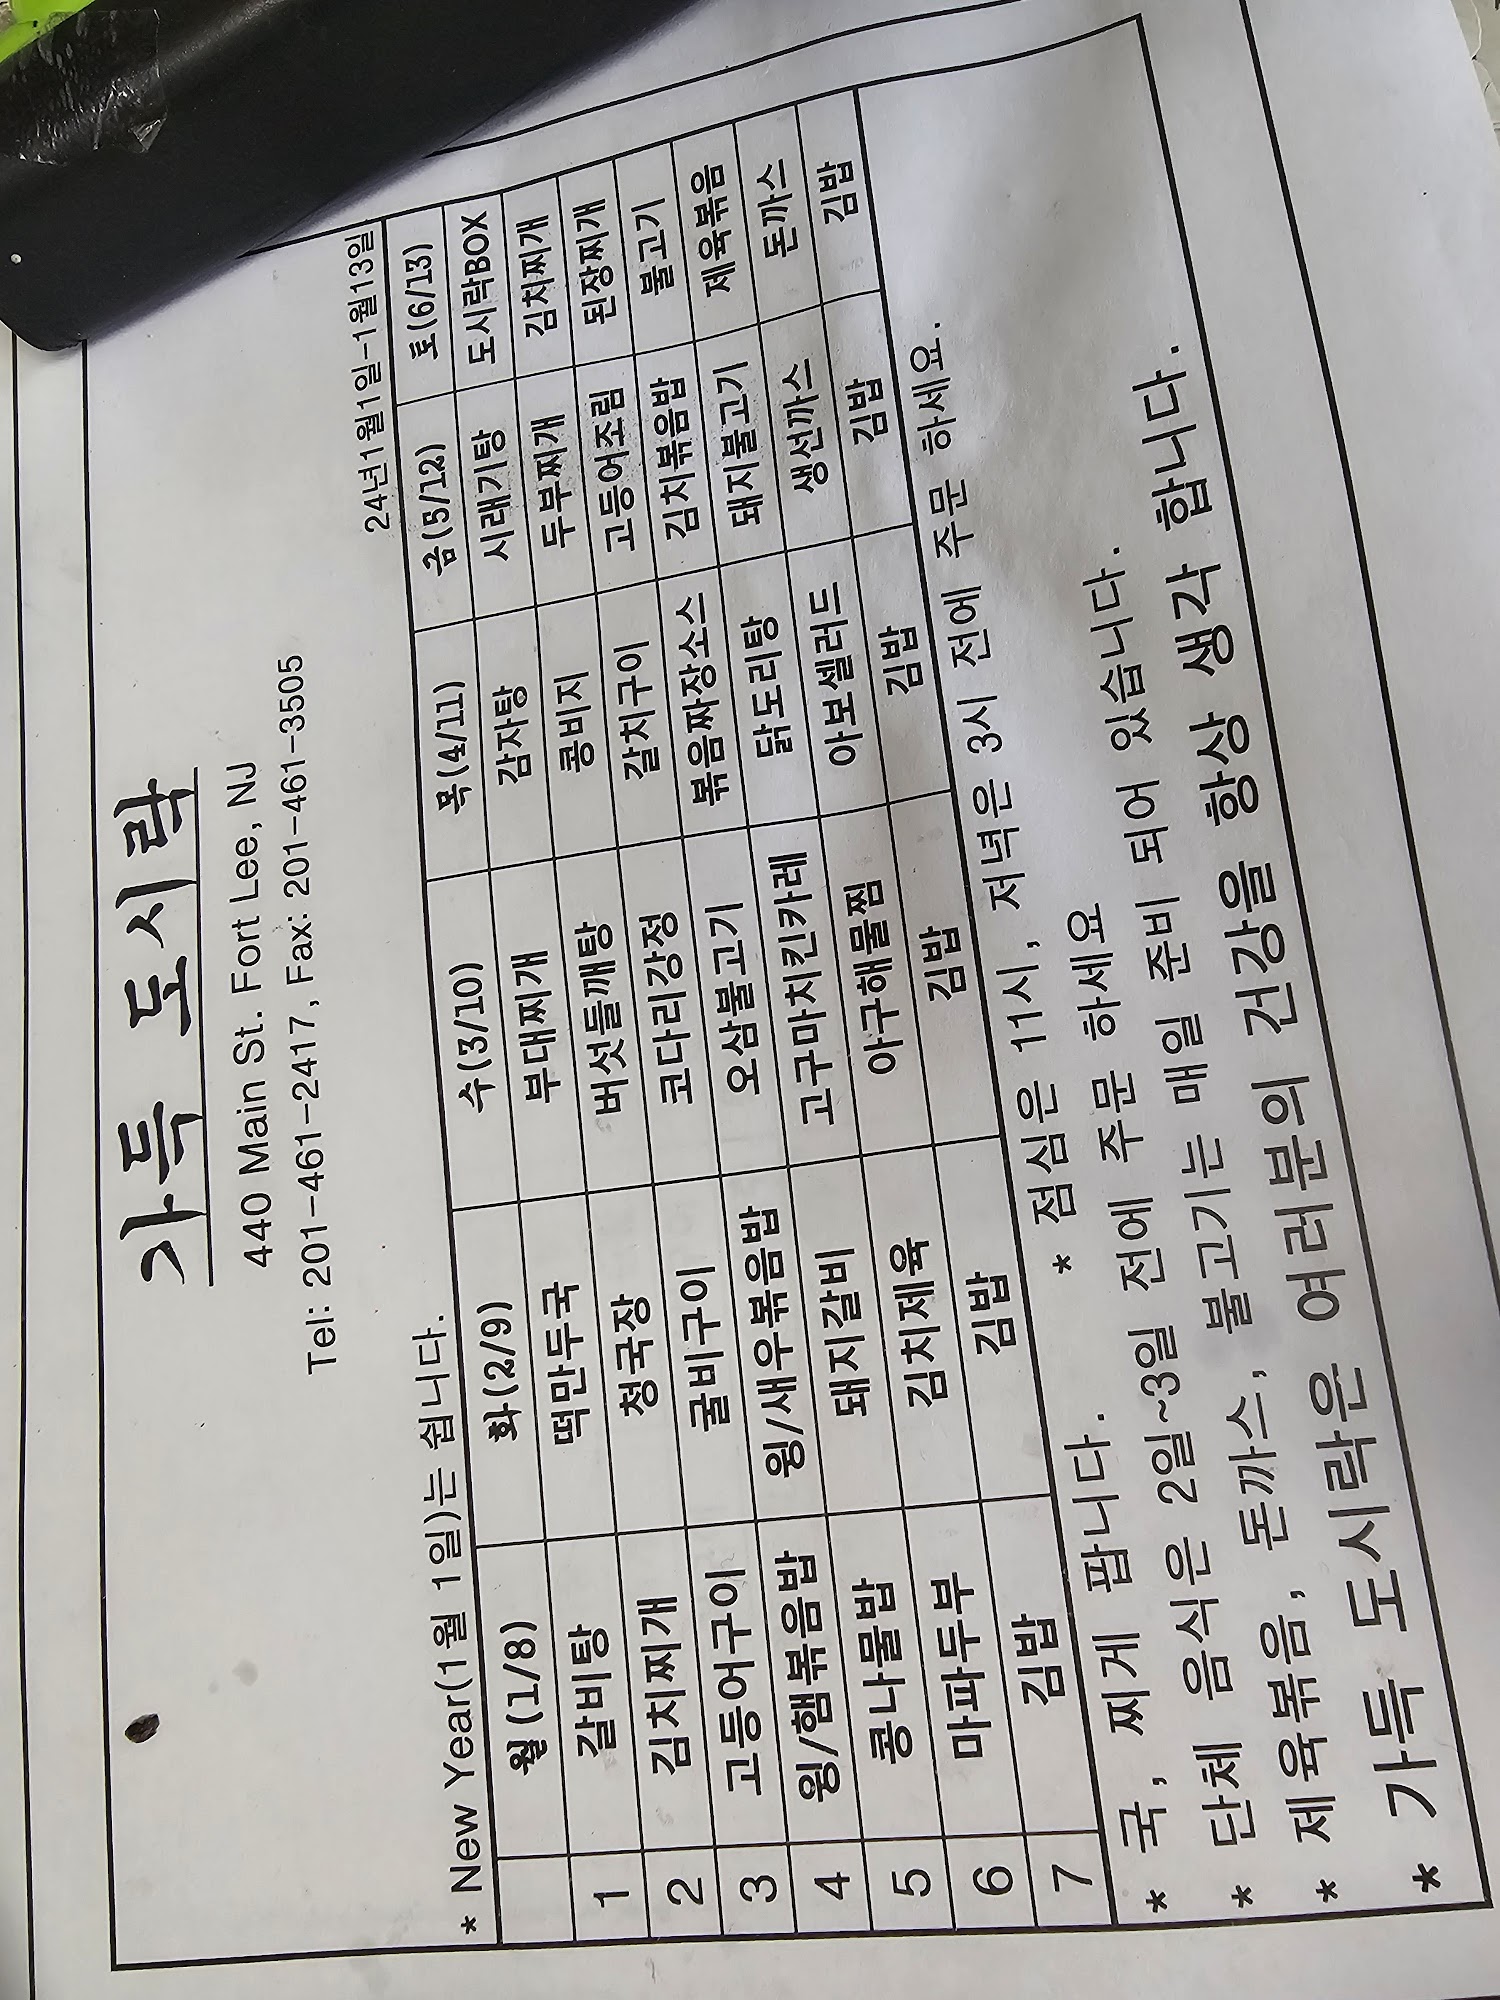 가득 도시락
440 Main St. Fort Lee, NJ
Tel: 201-461-2417, Fax: 201-461-3505
24년1월1일-1월13일
* New Year(1월 1일)는 쉽니다.
월(1/8) 화(2/9) 수(3/10) 목(4/11) 금(5/12) 토(6/13)
1 갈비탕 떡만두국 부대찌개 감자탕 시래기탕 도시락BOX
2 김치찌개 청국장 버섯들깨탕 콩비지 두부찌개 김치찌개
3 고등어구이 굴비구이 코다리강정 갈치구이 고등어조림 된장찌개
4 윙/햄볶음밥 윙/새우볶음밥 오삼불고기 볶음짜장소스 김치볶음밥 불고기
5 콩나물밥 돼지갈비 고구마치킨카레 닭도리탕 돼지불고기 제육볶음
6 마파두부 김치제육 아구해물찜 아보셀러드 생선까스 돈까스
7 김밥 김밥 김밥 김밥 김밥 김밥
* 국, 찌게 팝니다. * 점심은 11시, 저녁은 3시 전에 주문 하세요.
* 단체 음식은 2일~3일 전에 주문 하세요
* 제육볶음, 돈까스, 불고기는 매일 준비 되어 있습니다.
* 가득 도시락은 여러분의 건강을 항상 생각 합니다.